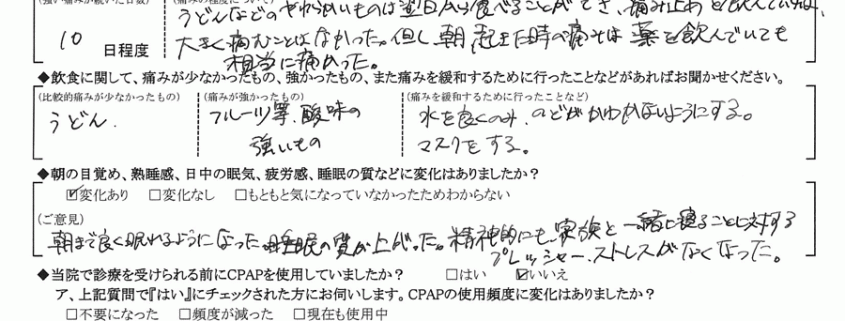 (強い痛みが続いた日数) (痛みの程度について)
うどんなどのやわらかいものは翌日から食べることができ、痛み止めを飲んでいれば、
10 日程度 大きく痛むことはなかった。但し朝起きた時の痛みは薬を飲んでいても
相当に痛かった。
◆飲食に関して、痛みが少なかったもの、強かったもの、また痛みを緩和するために行ったことなどがあればお聞かせください。
(比較的痛みが少なかったもの) (痛みが強かったもの) (痛みを緩和するために行ったことなど)
うどん. フルーツ等.酸味の 水を良くのみ、のどがかわかないようにする。
強いもの マスクをする。
◆朝の目覚め、熟睡感、日中の眠気、疲労感、睡眠の質などに変化はありましたか?
☑変化あり □変化なし □もともと気になっていなかったためわからない
(ご意見)
朝まで良く眠れるようになった。睡眠の質が上がった。精神的にも、家族と一緒に寝ることに対する
プレッシャー・ストレスがなくなった。
◆当院で診療を受けられる前にCPAPを使用していましたか? □はい ☑いいえ
ア、上記質問で『はい』にチェックされた方にお伺いします。CPAPの使用頻度に変化はありましたか?
□不要になった □頻度が減った □現在も使用中